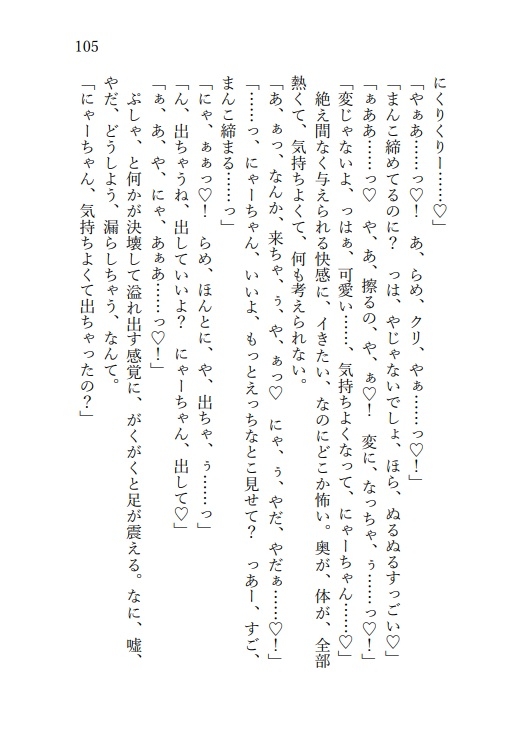 105
にくりくりー……♡」
「やぁあ……っ♡！　あ、らめ、クリ、やぁ……っ♡！」
「まんこ締めてるのに？　っは、やじゃないでしょ、ほら、ぬるぬるすっごい♡」
「ぁああ……っ♡　や、あ、擦るの、や、ぁ♡！　変に、なっちゃ、ぅ……っ♡！」
「変じゃないよ、っはぁ、可愛い……、気持ちよくなって、にゃーちゃん……♡」
　絶え間なく与えられる快感に、イきたい、なのにどこか怖い。奥が、体が、全部
熱くて、気持ちよくて、何も考えられない。
「あ、ぁっ、なんか、来ちゃ、ぅ、や、ぁっ♡　にゃ、ぅ、やだ、やだぁ……♡！」
「……っ、にゃーちゃん、いいよ、もっとえっちなとこ見せて？　っあー、すご、
まんこ締まる……っ」
「にゃ、ぁぁっ♡！　らめ、ほんとに、や、出ちゃ、ぅ……っ」
「ん、出ちゃうね、出していいよ？　にゃーちゃん、出して♡」
「ぁ、あ、や、にゃ、あぁあ……っ♡！」
　ぷしゃ、と何かが決壊して溢れ出す感覚に、がくがくと足が震える。なに、嘘、
やだ、どうしよう、漏らしちゃう、なんて。
「にゃーちゃん、気持ちよくて出ちゃったの？」